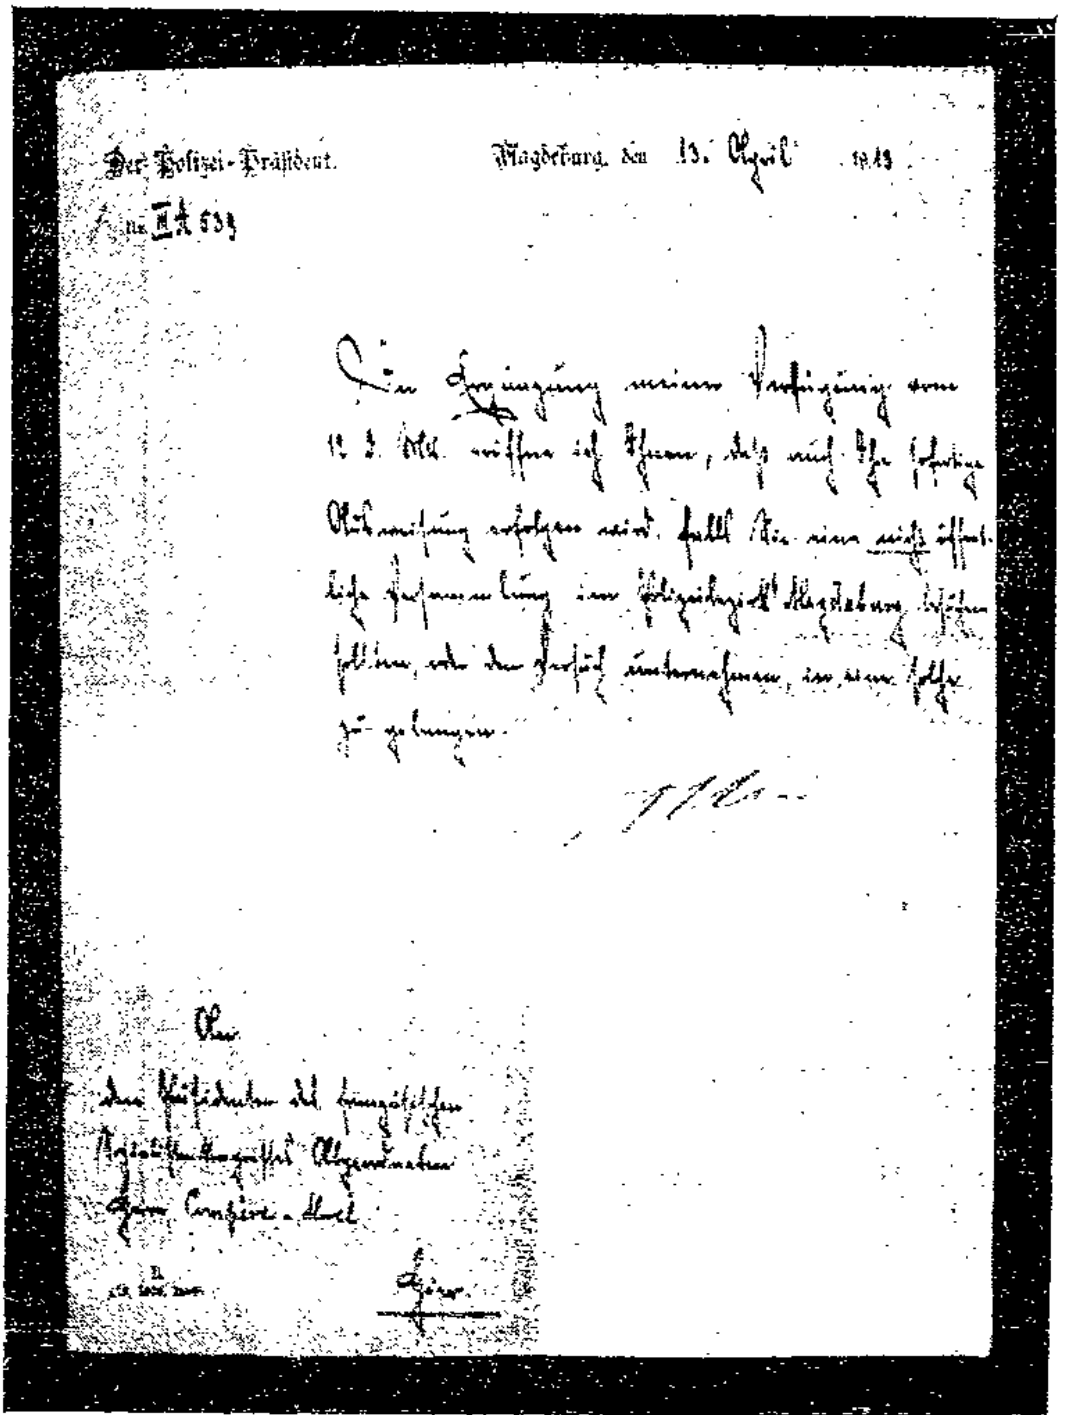 Der Polizei-Präsident.
Magdeburg, den 13. April 1913
Nr. II A 639
In Ergänzung meiner Verfügung vom
12. d. Mts. eröffne ich Ihnen, daß auch Ihre sofortige
Ausweisung erfolgen wird, falls Sie eine nicht öffent-
liche Versammlung im Polizeibezirk Magdeburg
sollten, oder den Versuch unternehmen, in eine solche
zu gelangen.
An
den Präsidenten des französischen
Abgeordneten
Herrn Compère-Morel
Hier.